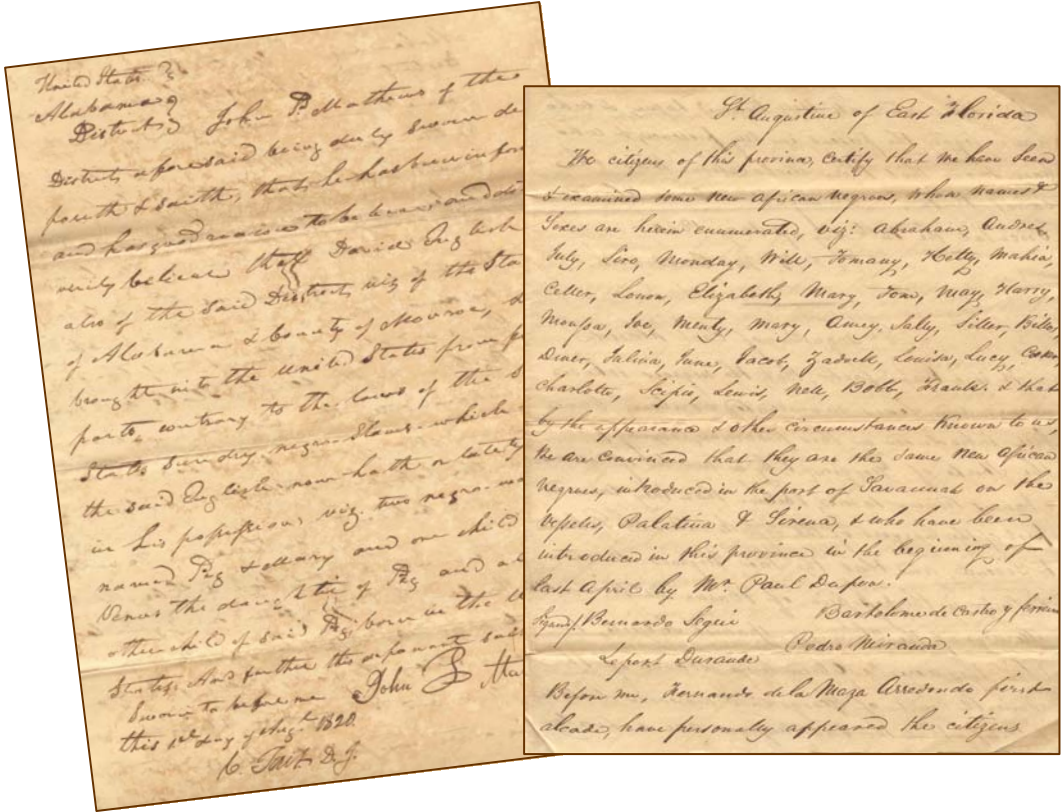 United States
Alabama
District
John P. Mathews of the
District aforesaid being duly sworn de
poseth & saith, that he has been infor
and has good reason to believe, and do
verily believe that David English
also of the said District, viz of the Sta
of Alabama & County of Monroe,
brought into the United States from
ports, contrary to the laws of the
States Sundry negro Slaves which
the said English now hath or lately
in his possession, viz. two negro
named Peg & Mary and one child
Venus the daughter of Peg and a
other child of said Peg born in the U
States. And further this deponent sai
Sworn to before me John P Mat
this 1st day of Augt. 1820.
C. Tait D. J.
St. Augustine of East Florida
We citizens of this province, certify that we have Seen
& examined some new African negroes, whose names &
Sexes are herein enumerated, viz: Abraham, Andrew
July, Siro, Monday, Will, Tomany, Hetty, Mahia,
Celler, Lonon, Elizabeth, Mary, Tom, May, Harry,
Moussa, Joe, Menty, Mary, Amey, Sally, Siller, Biller
Diner, Salina, June, Jacob, Zadock, Louisa, Lucy,
Charlotte, Scipio, Lewis, Nell, Bobb, Frank. & that
by the appearance & other circumstances Known to us,
We are convinced that they are the same new African
negroes, introduced in the port of Savannah on the
Vessels, Palatina & Sirena, & who have been
introduced in this province in the beginning of
last April by Mr. Paul Dupon.
Signed/. Bernardo Segui Bartolome de Castro y ferrer
Pedro Miranda
Leport Durande
Before me, Fernando de la Maza Arredondo first
alcade, have personally appeared the citizens